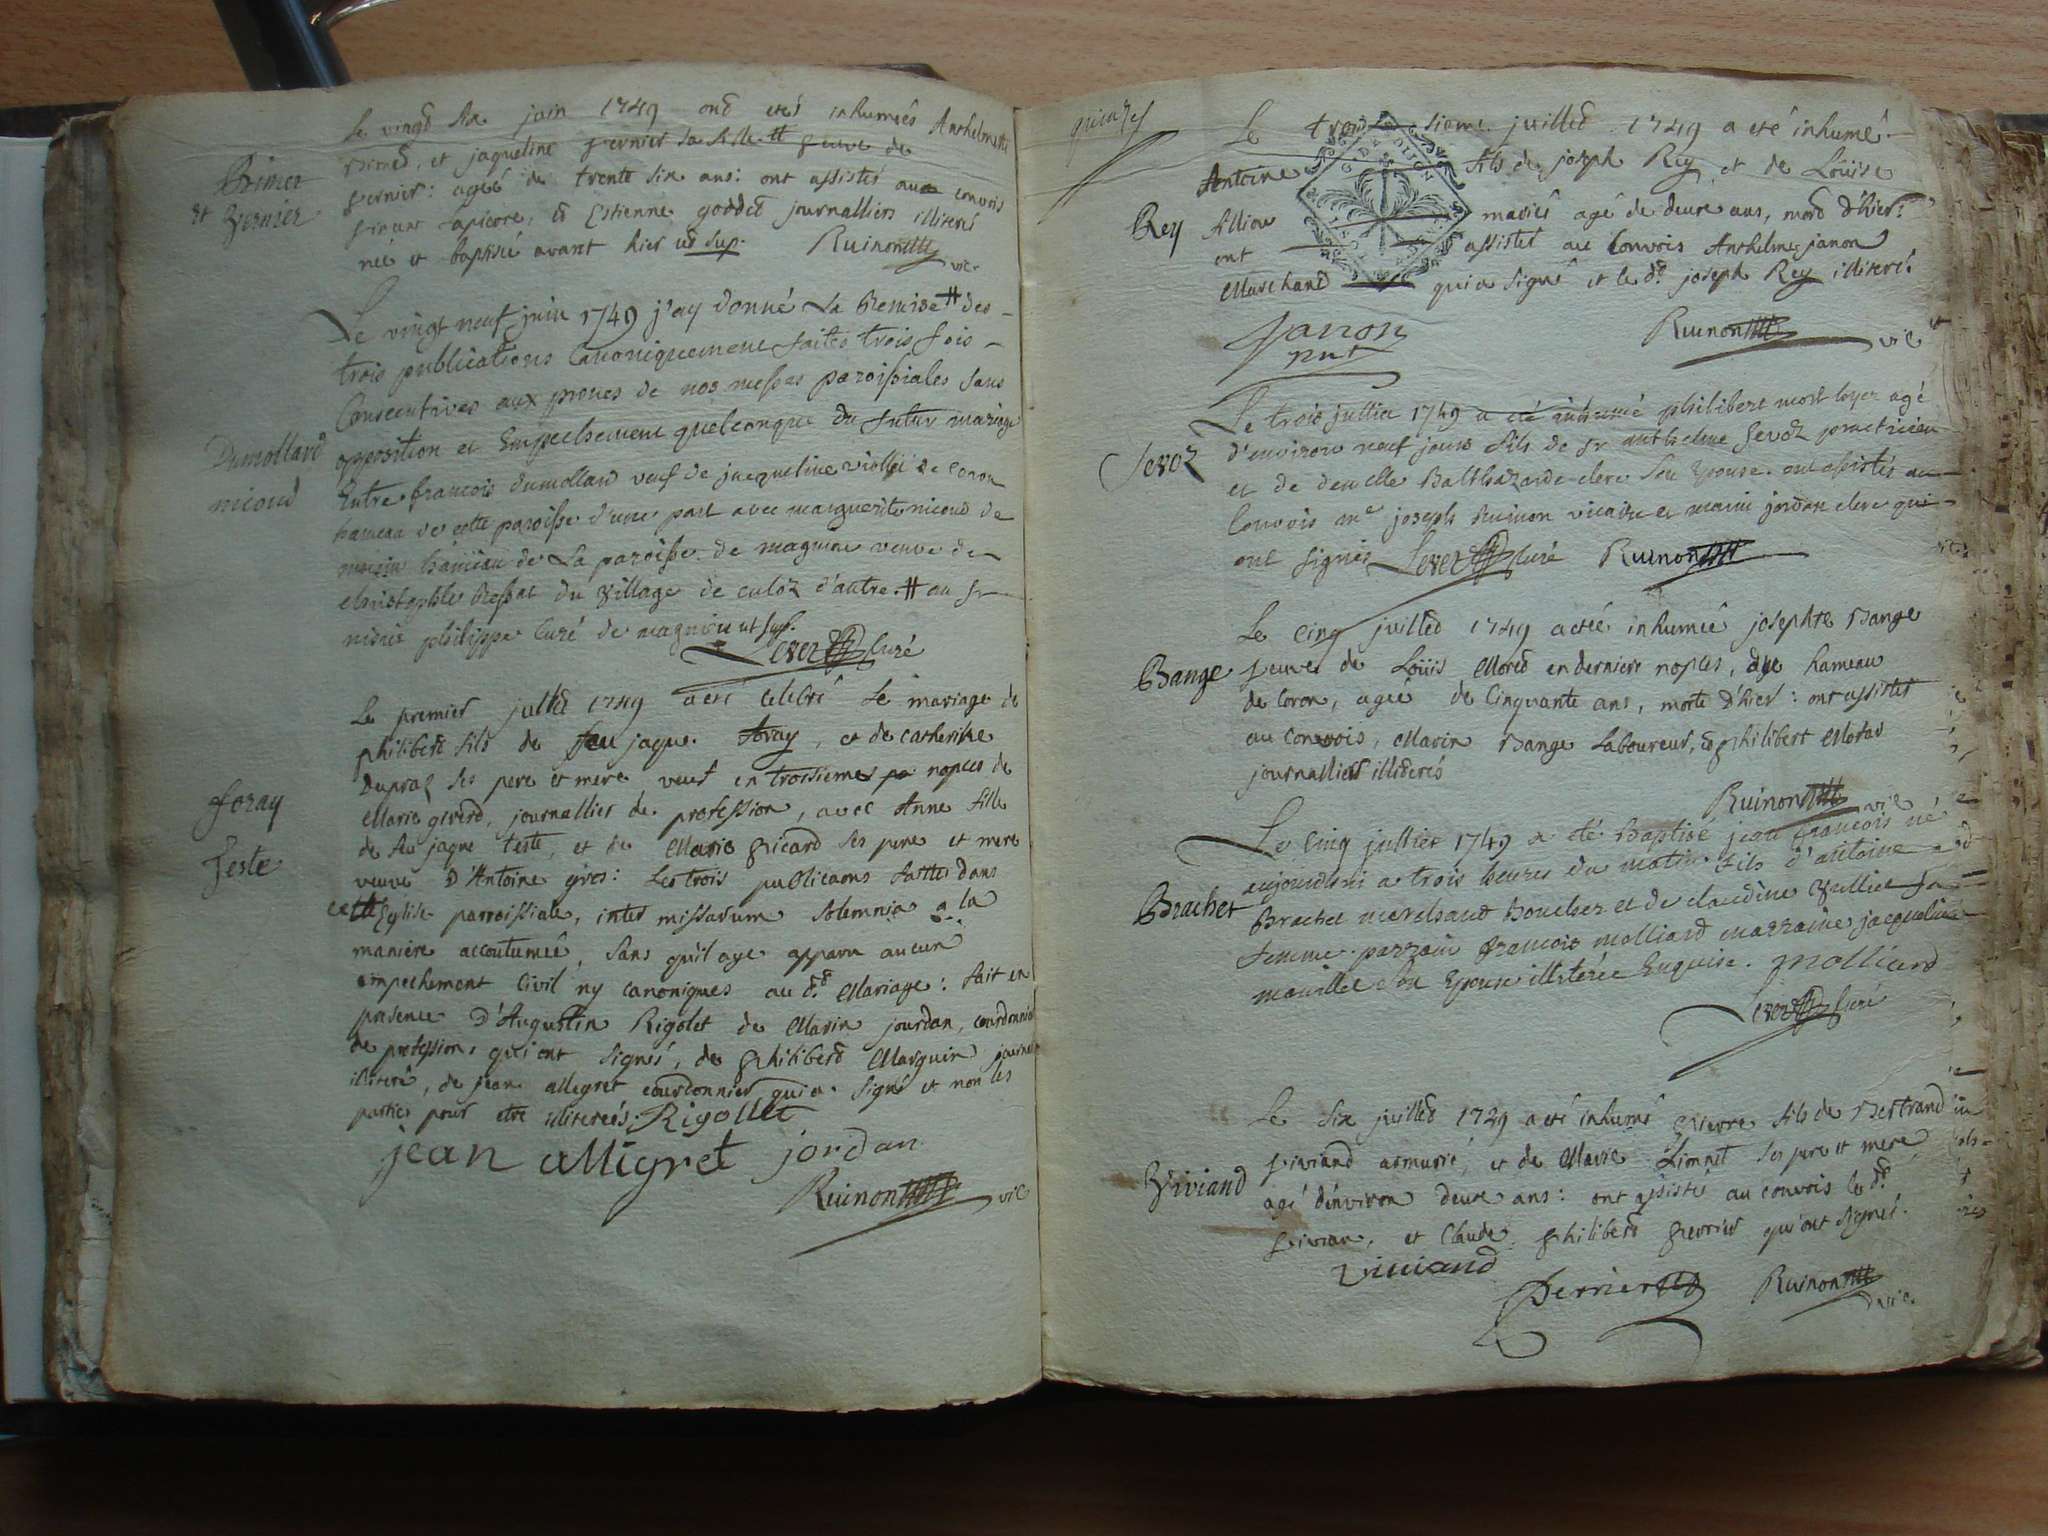 Le vingd six juin 1749 ond etés inhumeés Anthelmette
Bimet, et jaqueline vernier sa fille # veuve de
vernier: ageé de trente six ans: ont assistés aux convois
vincent apicore, et Estienne goddet journalliers illiterés
neé et baptiseé avant hier ut sup. Ruinon
vic.
Bimet
et Vernier
Le vingt neuf juin 1749 j'ay donné La Remise # des
trois publications Canoniquement faites trois fois
Consecutives aux prones de nos messes paroissiales sans
opposition et Empechement quelconque du futur mariage
Entre francois dumollard veuf de jacqueline viollet de coron
hameau de cette paroisse d'une part avec marguerite nicoud de
hameau de La paroisse de magnieu veuve de
christophle Bessat du village de culoz d'autre. # au sr
philippe Curé de magnieu ut sup.
Sevoz Curé
Dumollard
nicoud
Le premier julled 1749 a eté celebré Le mariage de
philibert fils de feu jaque foray, et de catherine
Dupraz ses pere et mere veuf en troisiemes nopces de
Marie giverd, journallier de profession, avec Anne fille
de feu jaque teste, et de Marie picard ses pere et mere
veuve D'Antoine gros: Les trois publicaons faittes dans
cette Eglise parroissiale, inter missarum solemnia a la
maniere accoutumeé, sans qu'il aye apparu aucun
empechement Civil ny canoniques au d. Mariage: fait en
presence D'Augustin Rigolet de Marin jourdan, courdonnier
de profession, qui ont signés, de philiberd Marguin journal
illiteré, de jean allegret courdonnier qui a signé et non les
parties pour etre illitereés. Rigollet
jean alligret jordan
Ruinon vic
foray
Teste
quinzes
Le troisieme juilled 1749 a eté inhumé
Antoine fils de joseph Rey et de Loüise
Alliou mariés agé de deux ans, mord d'hier:
ont assistés au Convois Anthelme janon
Marchand qui a signé et le d. joseph Rey illiteré.
Rey
G. DE DIJON
Janon
pnt
Ruinon vic
Le trois jullier 1749 a eté inhumé philibert mort hyer agé
d'environ neuf jours fils de sr anthelme Sevoz practicien
et de demlle Balthazarde clerc son Epouse. ont assistés au
Convois me joseph Ruinon vicaire et marin jordan clerc qui
ont signés Sevoz Curé Ruinon
Sevoz
Le cinq juilled 1749 a eté inhumeé josephte Bange
veuve de Loüis Mored en derniere nopces, du hameau
de Coron, ageé de Cinquante ans, morte d'hier: ont assistés
au convois, Marin Bange Laboureur, et philibert Motas
journalliers illiderés
Ruinon vic
Bange
Le Cinq jullier 1749 a eté Baptisé jean francois né
aujourdhui a trois heures du matin fils d'antoine
Brachet marchand boucher et de claudine vulliet sa
femme. parrain francois molliard marraine jacqueline
mouillet son Epouse illiterée Enquise. molliard
Sevoz Curé
Brachet
Le six juilled 1749 a eté inhumé pierre fils de Bertrand
viviand armurié, et de Marie Lionnet ses pere et mere,
agé d'environ deux ans: ont assistés au convois le d.
vivian, et Claude philiberd perrier qu'ont signés.
Viviand
Viviand
Perrier Ruinon
vic.